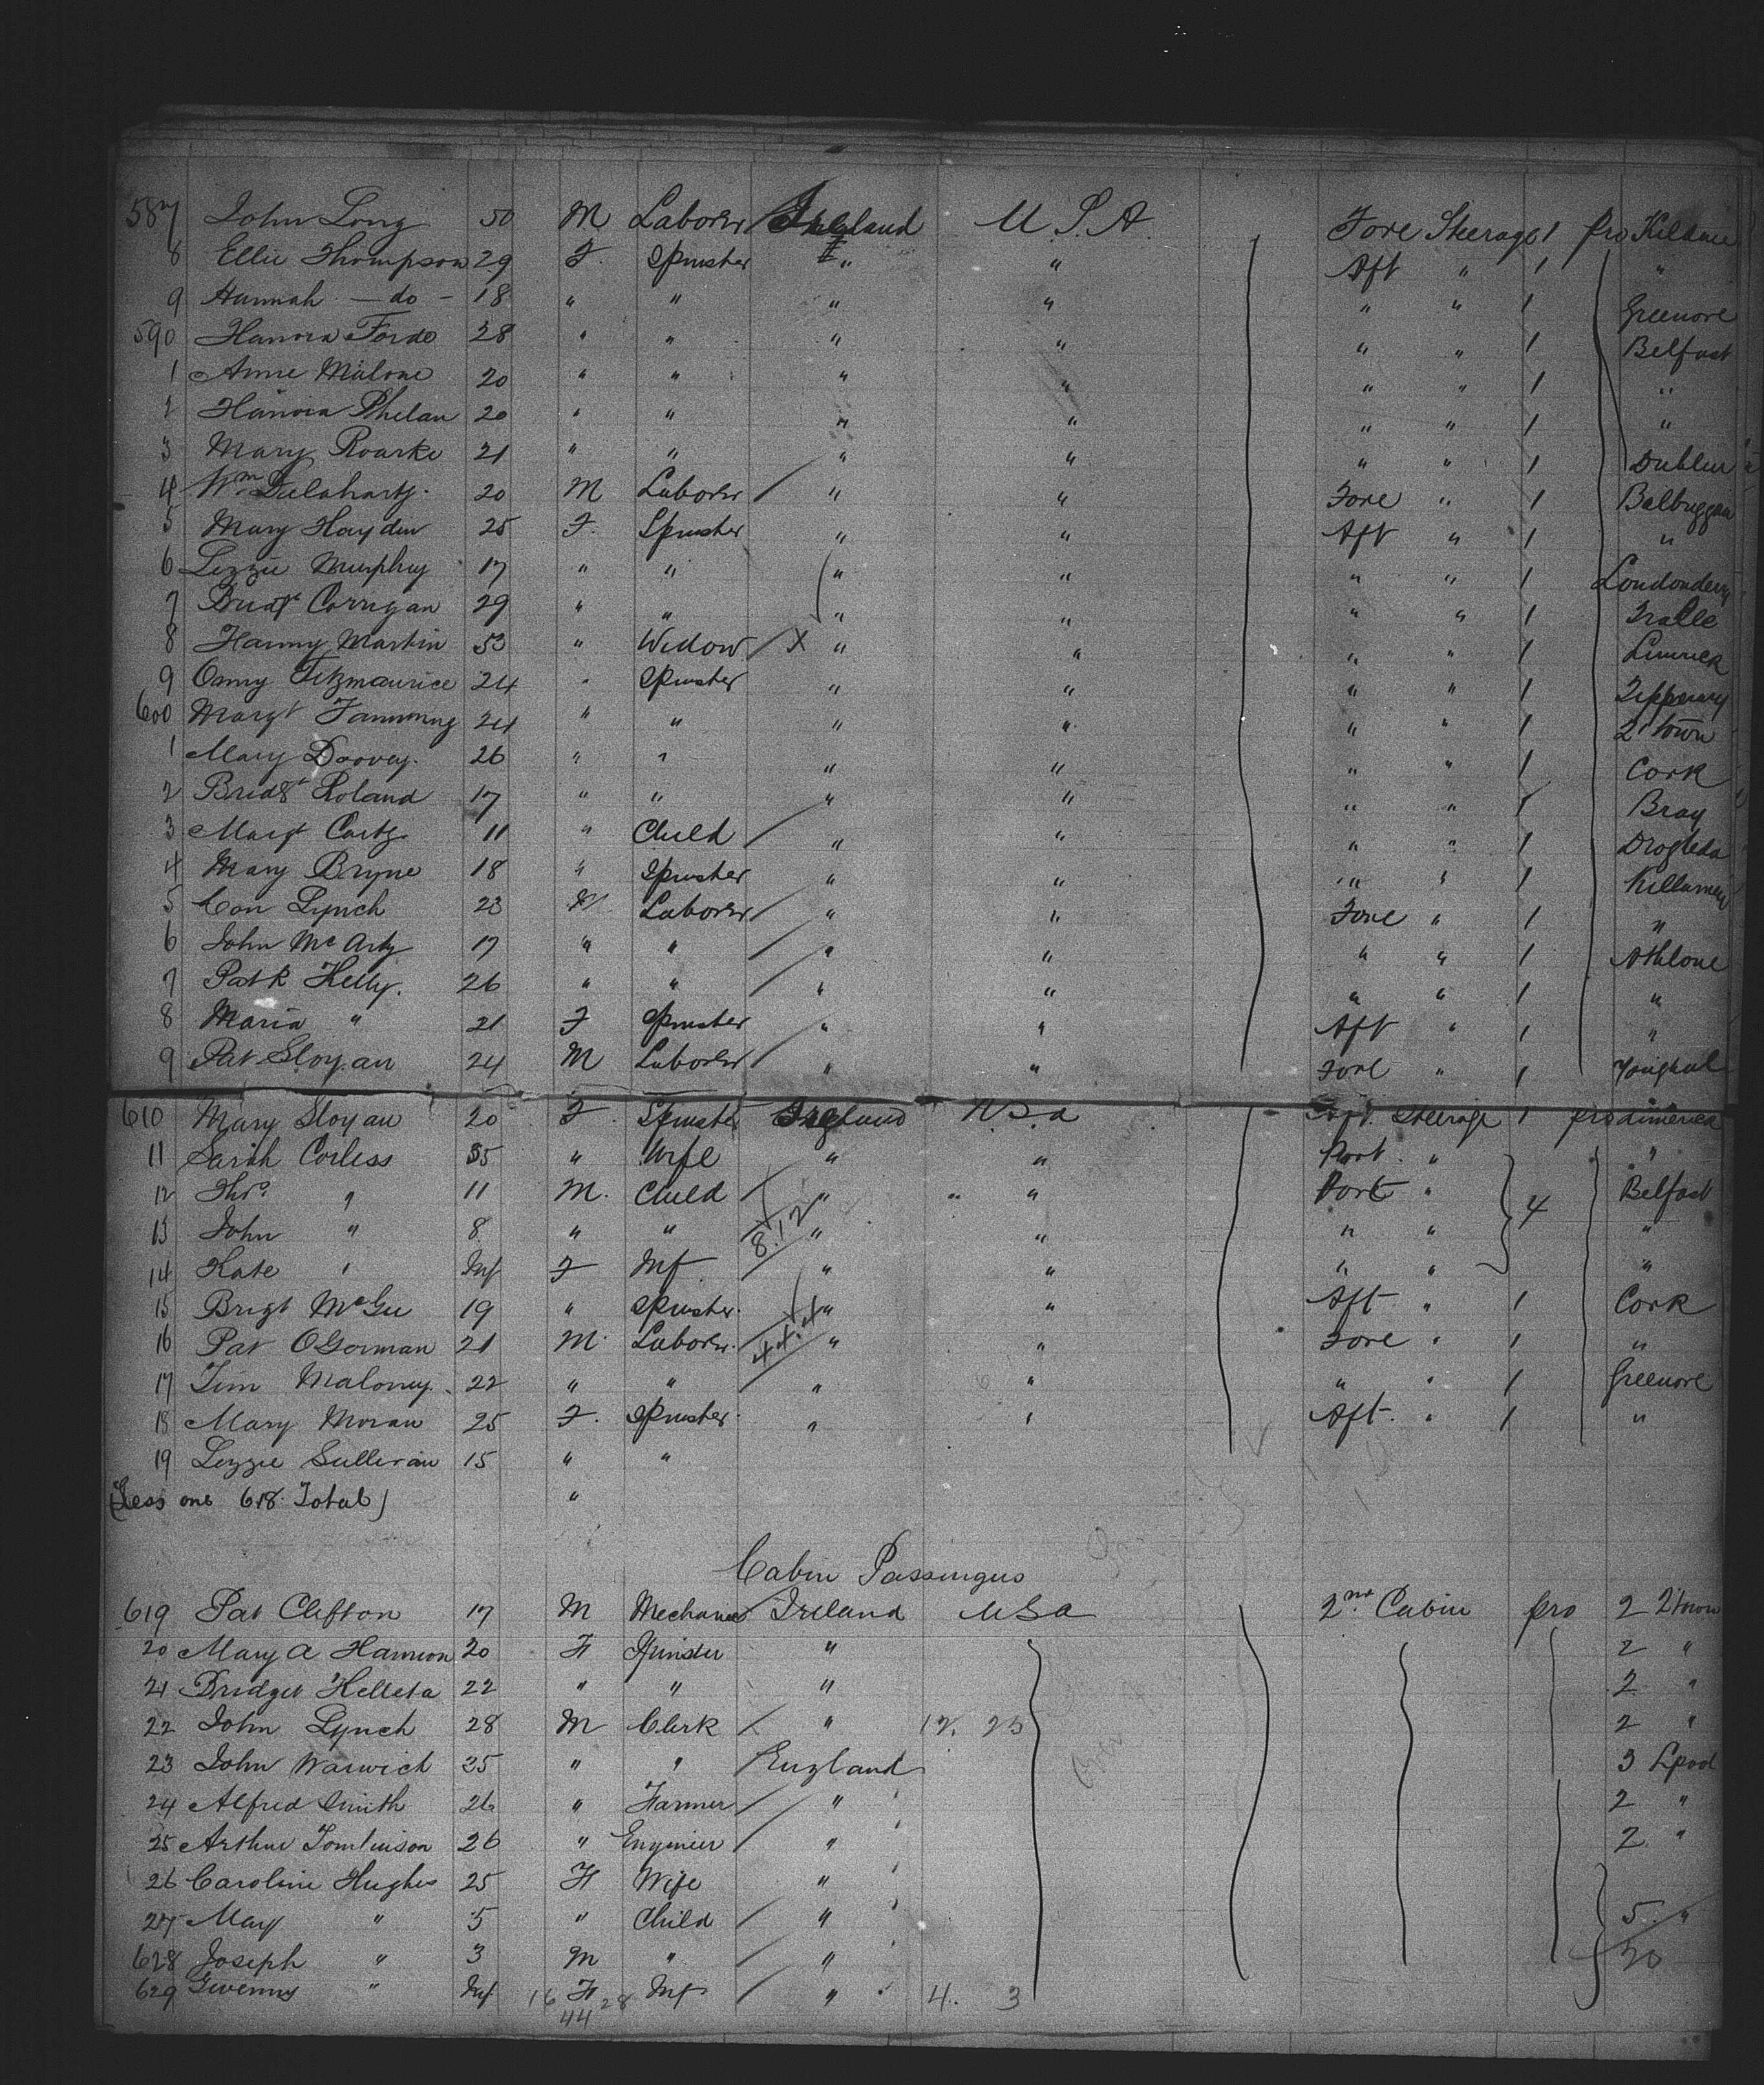 587 John Long 50 M Laborer Ireland U.S.A. Fore Steerage 1 pro Kildare
8 Ellie Thompson 29 F. Spinster " " Aft " 1 "
9 Hannah — do — 18 " " " " " " 1 Greenore
590 Hanora Forde 28 " " " " " " 1 Belfast
1 Anne Malone 20 " " " " " " 1 "
2 Hanora Phelan 20 " " " " " " 1 "
3 Mary Roarke 21 " " " " " " 1 Dublin
4 Wm Delaharty 20 M Laborer " " Fore " 1 Balbriggan
5 Mary Hayden 25 F. Spinster " " Aft " 1 "
6 Lizzie Murphy 17 " " " " " " 1 Londonderry
7 Bridgt Corrigan 29 " " " " " " 1 Tralee
8 Fanny Martin 53 " Widow X " " " " 1 Limrick
9 Fitzmaurice 24 " Spinster " " " " 1 Tipperary
600 Margt Fanning 24 " " " " " " 1 Q'town
1 Mary Doovey 26 " " " " " " 1 Cork
2 Bridgt Roland 17 " " " " " " 1 Bray
3 Margt Carty 11 " Child " " " " 1 Drogheda
4 Mary Bryne 18 " Spinster " " " " 1 Killarney
5 Con Lynch 23 M. Laborer " " Fore " 1 "
6 John McArty 17 " " " " " " 1 Athlone
7 Patk Kelly. 26 " " " " " " 1 "
8 Maria " 21 F Spinster " " Aft " 1 "
9 Pat Sloyan 24 M Laborer " " Fore " 1 Youghal
610 Mary Sloyan 20 F. Spinster Ireland U.S.a Steerage 1 pro Limerick
11 Sarah Corless 35 " Wife " " Port " "
12 Thos " 11 M. Child " " Port " 4 Belfast
13 John " 8 " " 8.12 " " " " "
14 Kate " Inf F Inf " " " " "
15 Brigt McGee 19 " Spinster " " Aft " 1 Cork
16 Pat OGorman 21 M. Laborer 44.4 " " Fore " 1 "
17 Tim Maloney 22 " " " " " " 1 Greenore
18 Mary Moran 25 F. Spinster " " Aft. " 1 "
19 Lizzie Sullivan 15 " "
(Less one 618 Total) "
Cabin Passengers
619 Pat Clifton 17 M Mechanic Ireland USa 2nd Cabin pro 2 Q'town
20 Mary A Hannon 20 F Spinster " 2 "
21 Bridget Kelleta 22 " " " 2 "
22 John Lynch 28 M Clerk " 12. 23 2 "
23 John Warwick 35 " " England 3 Lpool
24 Alfred Smith 26 " Farmer " 2 "
25 Arthur Tomlinson 26 " Engineer " 2 "
26 Caroline Hughes 25 F Wife "
27 May " 5 " Child " 5 "
628 Joseph " 3 M " " 20
629 " Inf 16 F 28 Inf " 4. 3
44